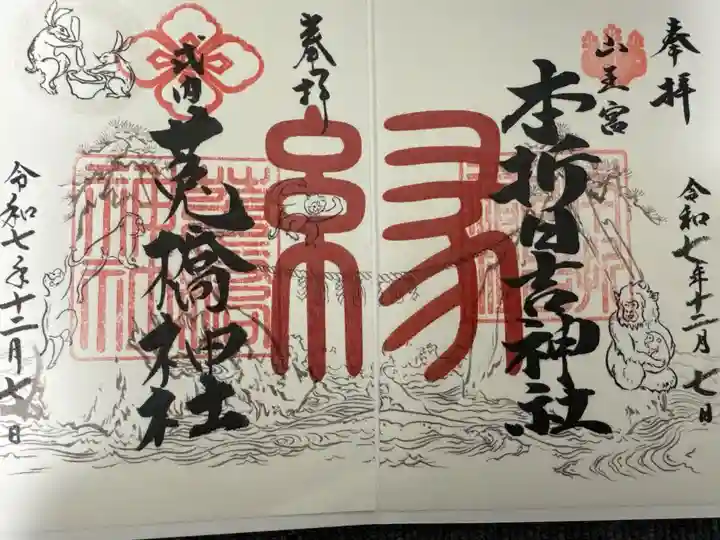 奉拝
山王宮
本折日吉神社
令和七年十二月七日
縁
奉拝
式内
莵橋神社
令和七年十二月七日